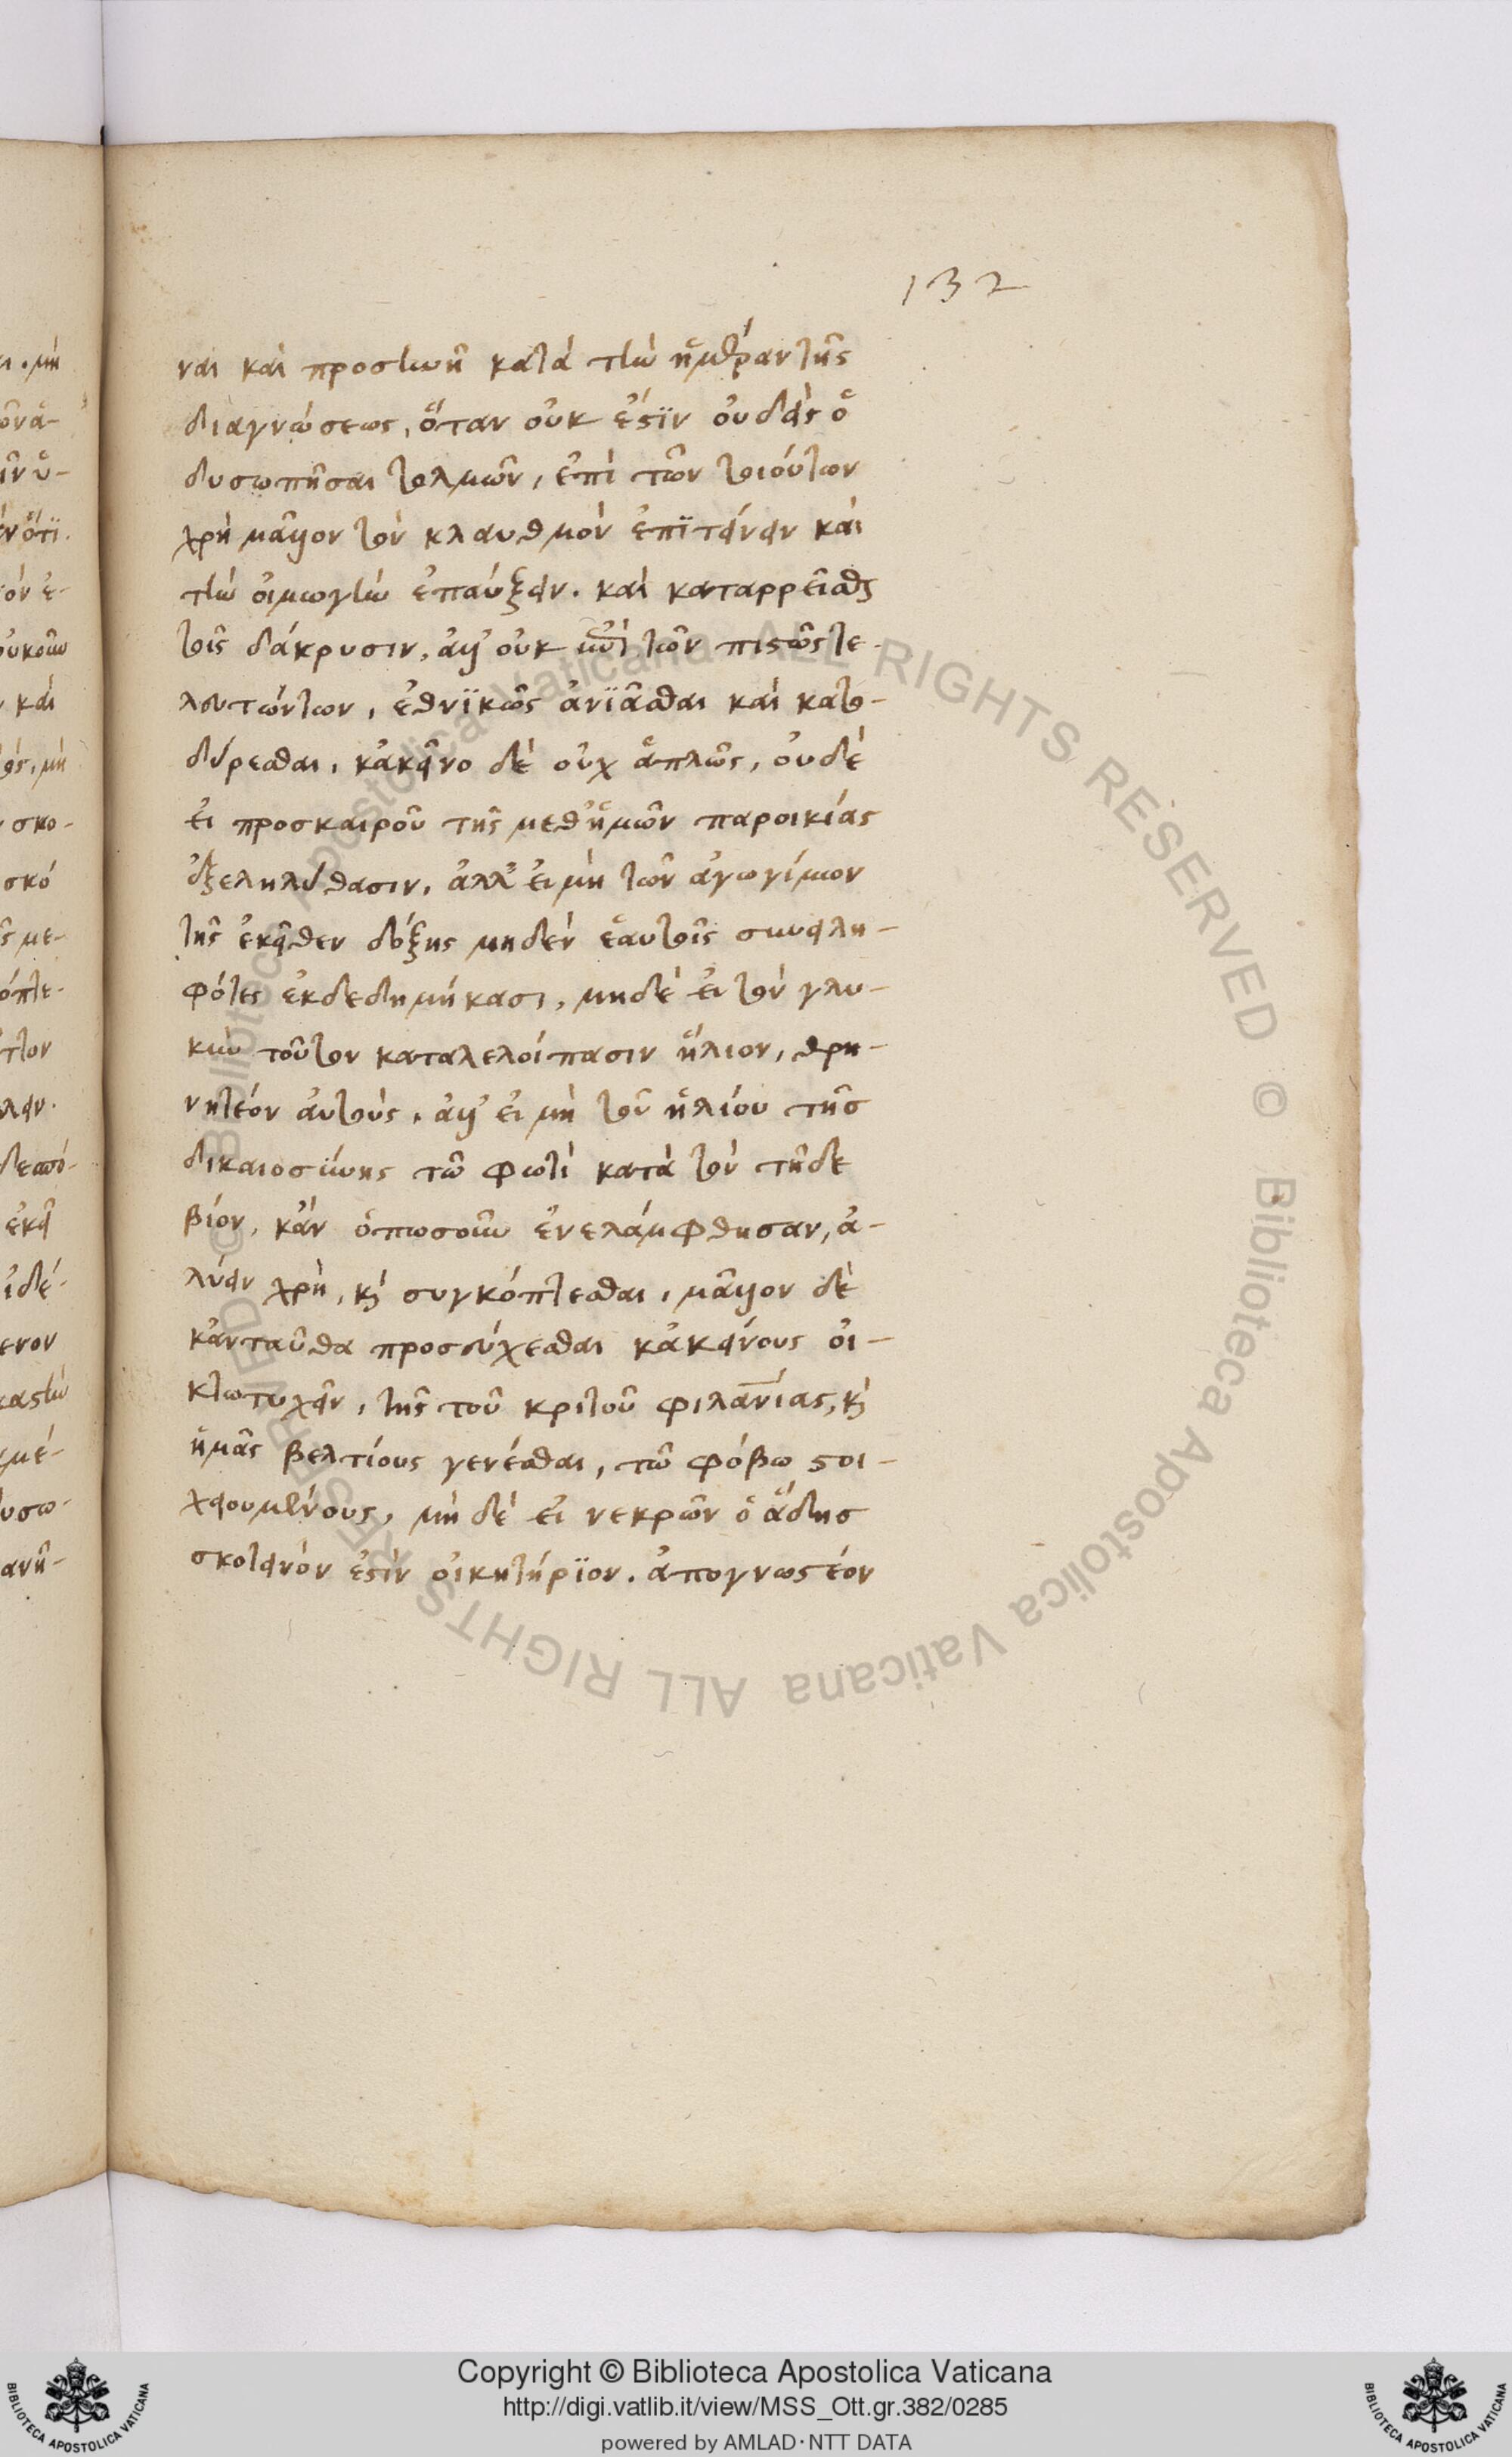 132
ναι καὶ προστωῆ κατὰ τὴν ἡμέραν τῆς
διαγνώσεως, ὅταν οὐκ ἔστιν οὐδεὶς ὁ
δυσωπῆσαι τολμῶν, ἐπὶ τῶν τοιούτων
χρὴ μᾶλλον τὸν κλαυθμὸν ἐπιτείνειν καὶ
τὴν οἰμωγὴν ἐπαύξειν. καὶ καταρρεῖσθαι
τοῖς δάκρυσιν, ἀλλ' οὐκ τῶν πιστῶς τε-
λευτώντων, ἐθνϊκῶς ἀνϊᾶσθαι καὶ κατο-
δύρεσθαι, κἀκεῖνο δὲ οὐχ ἁπλῶς, οὐδὲ
εἰ προσκαίρου τῆς μεθ' ἡμῶν παροικίας
ἐξεληλύθασιν, ἀλλ' εἰ μὴ τῶν ἀγωγίμων
τῆς ἐκεῖθεν δόξης μηδὲν ἑαυτοῖς συνειλη-
φότες ἐκδεδημήκασι, μηδὲ εἰ τὸν γλυ-
κὺν τοῦτον καταλελοίπασιν ἥλιον, θρη-
νητέον αὐτούς, ἀλλ' εἰ μὴ τοῦ ἡλίου τῆς
δικαιοσύνης τῶ φωτὶ κατὰ τὸν τῆδε
βίον, κἂν ὁπωσοῦν ἐνελάμφθησαν, ἀ-
λύειν χρὴ, καὶ συγκόπτεσθαι, μᾶλλον δὲ
κἀνταῦθα προσεύχεσθαι κἀκείνους οἰ-
κτω τυχεῖν, τῆς τοῦ κριτοῦ φιλανίας, καὶ
ἡμᾶς βελτίους γενέσθαι, τῶ φόβω στοι-
χειουμένους, μὴ δὲ εἰ νεκρῶν ὁ ἅδης
σκοτεινόν ἐστὶν οἰκητήρϊον. ἀπογνωστέον
Copyright © Biblioteca Apostolica Vaticana
http://digi.vatlib.it/view/MSS_Ott.gr.382/0285
powered by AMLAD·NTT DATA